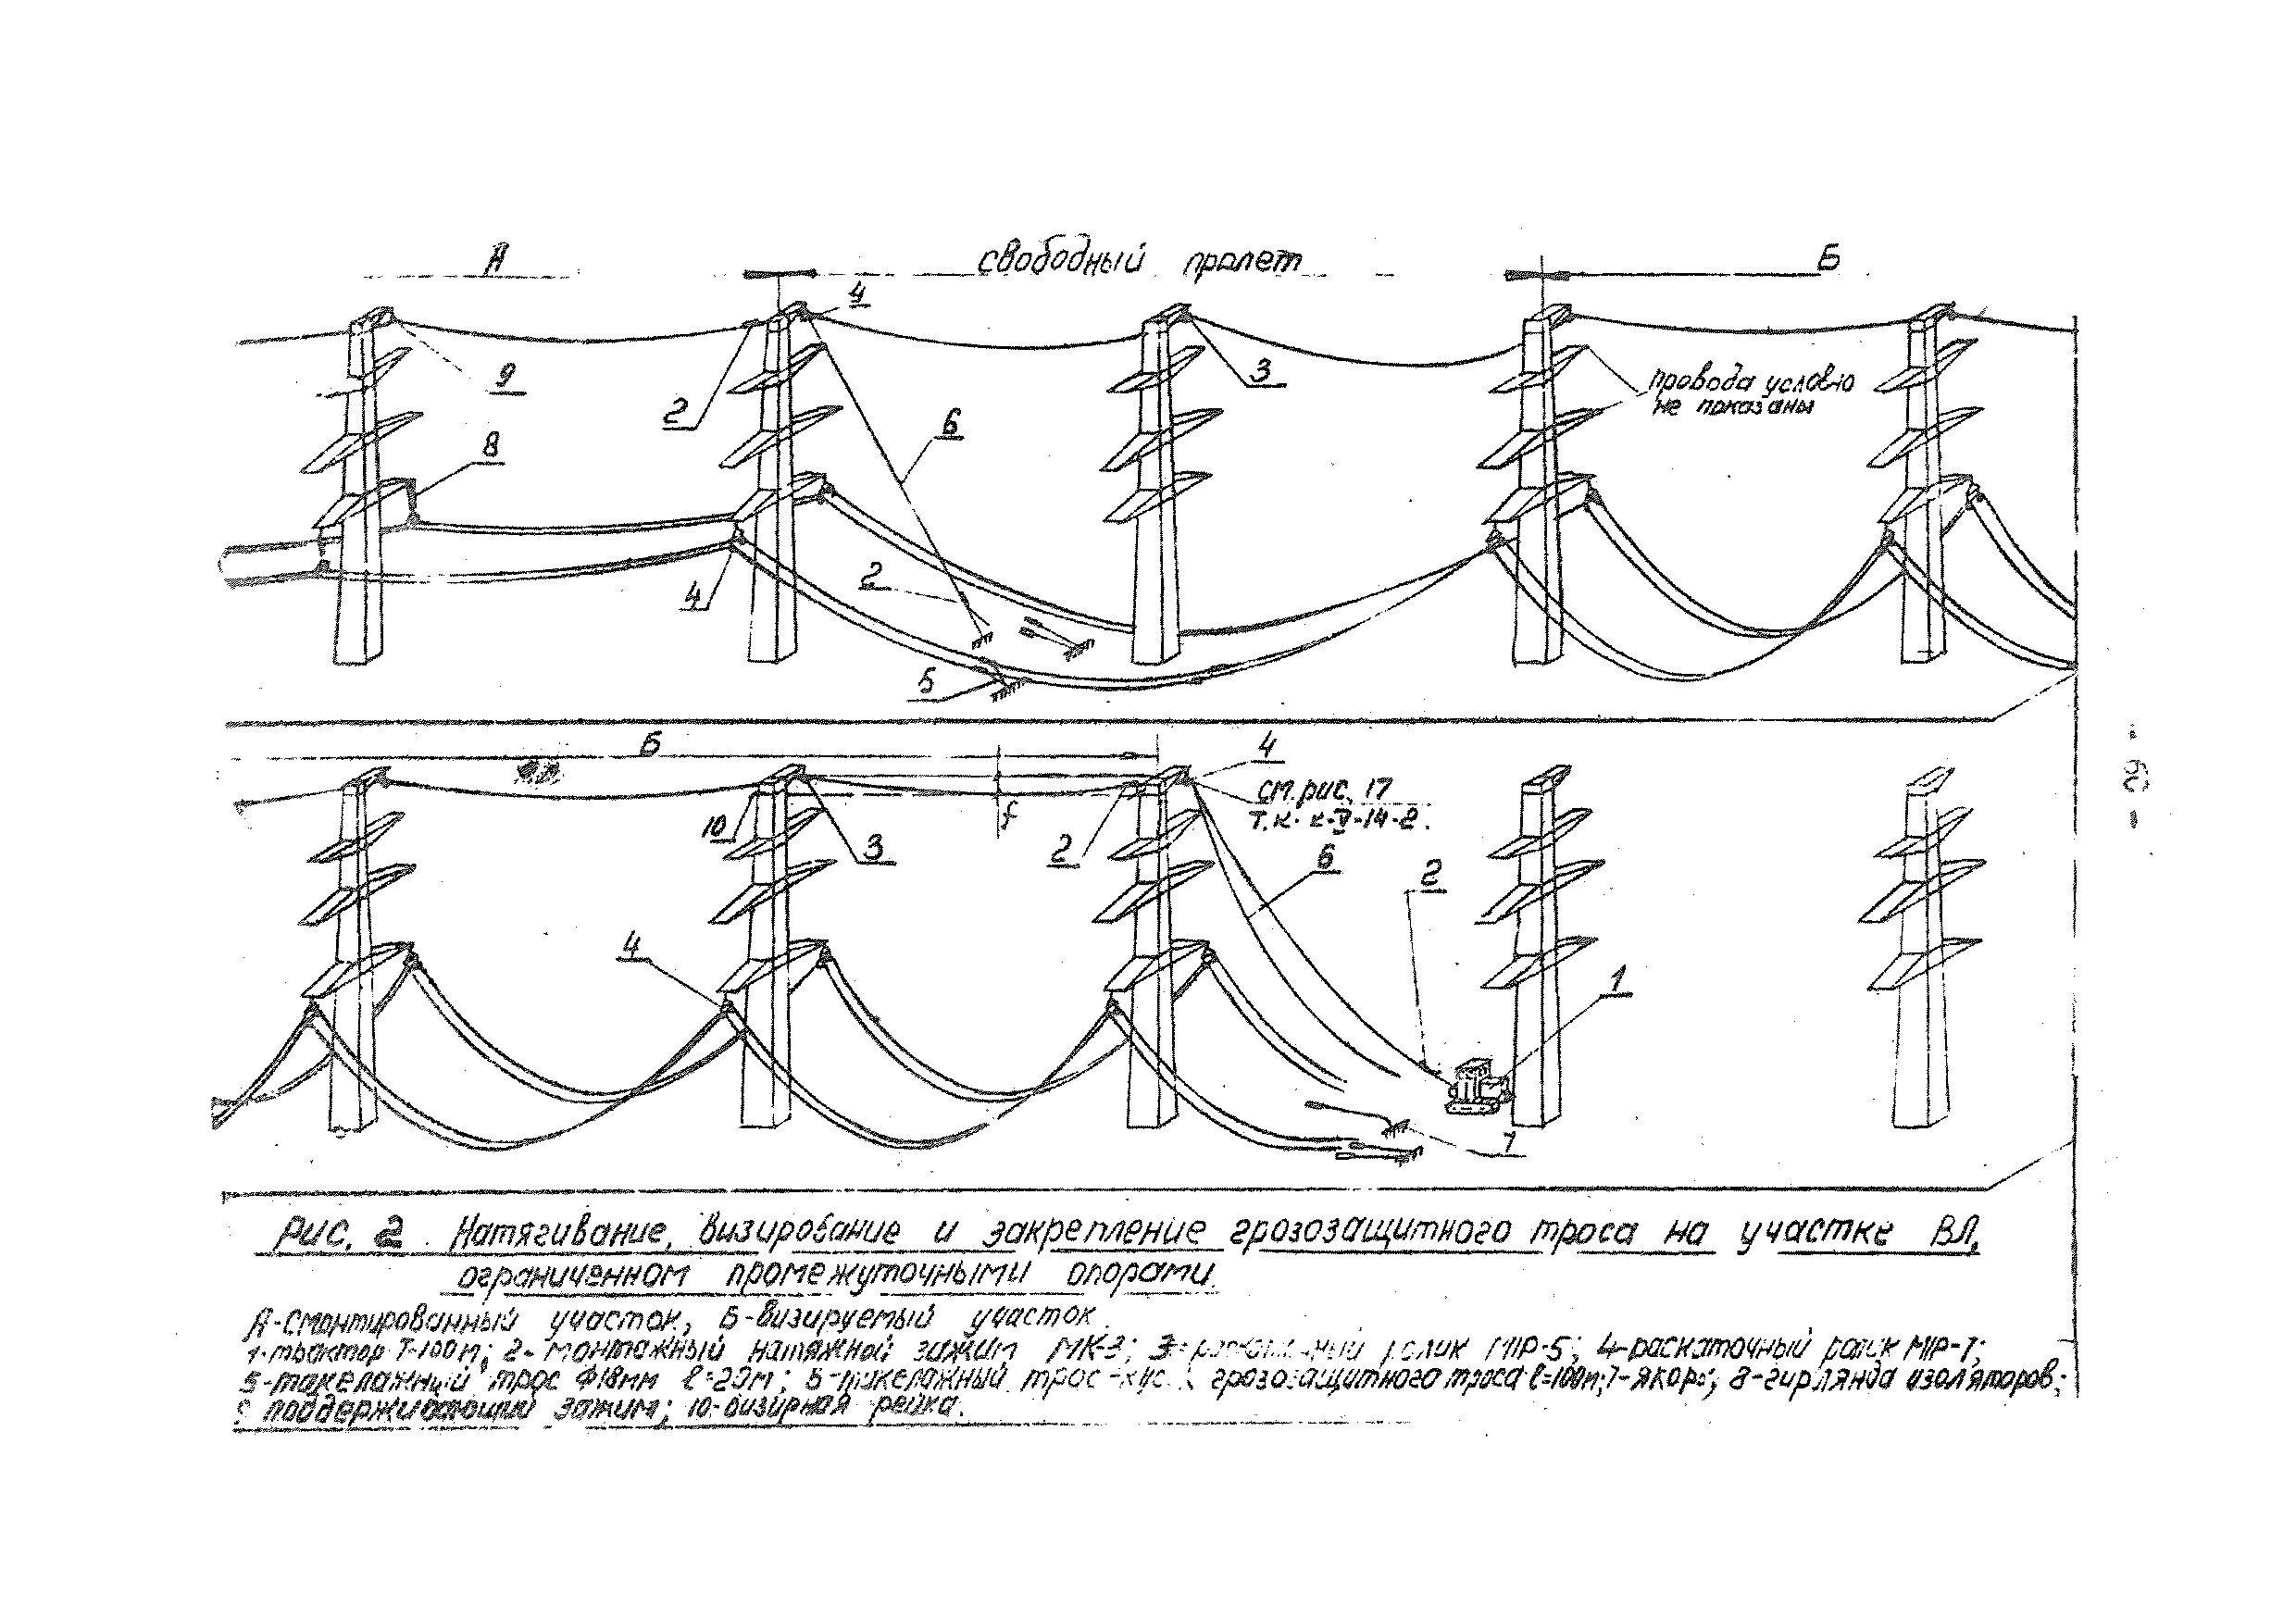 А
свободный пролет
Б
4
9
2
3
провода условно
не показаны
6
8
2
4
5
Б
4
см. рис. 17
т.к. к-V-14-2.
10
f
3
2
6
2
4
1
7
Рис. 2. Натягивание, визирование и закрепление грозозащитного троса на участке ВЛ,
ограниченном промежуточными опорами.
А-Смонтированный участок, Б-визируемый участок.
1-трактор Т-100м; 2-монтажный натяжной зажим МК-3; 3- ролик М1Р-5; 4-раскаточный ролик М1Р-7;
5-такелажный трос Ф18мм ℓ=20м; 6-такелажный трос-кус грозозащитного троса ℓ=100м; 7-якорь; 8-гирлянда изоляторов;
9 поддерживающий зажим; 10-визирная рейка.